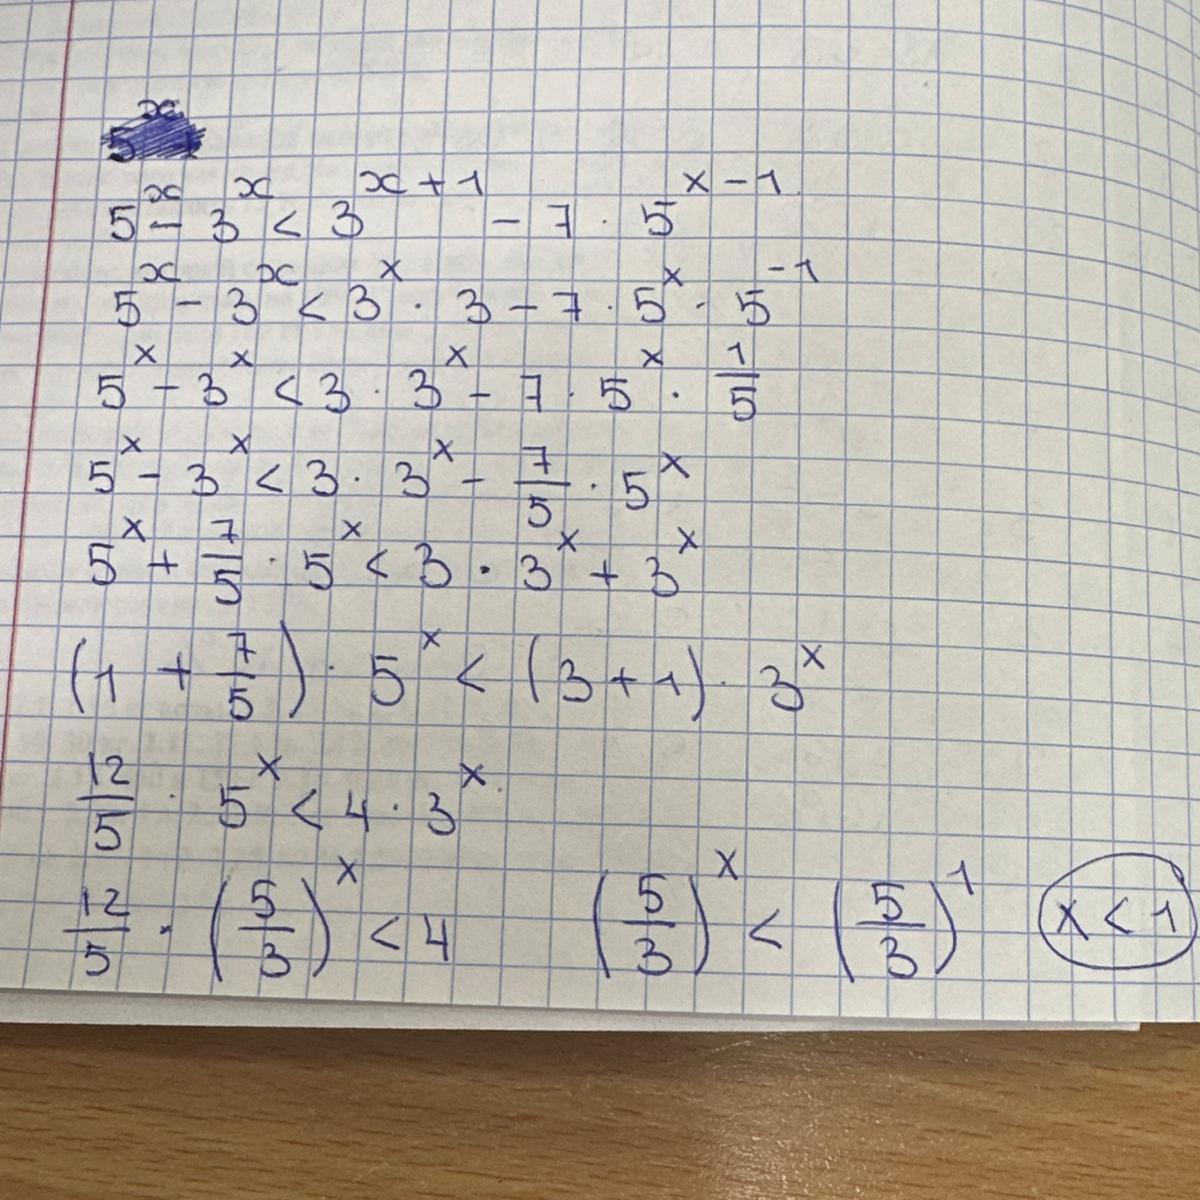 5^x - 3^x < 3^{x+1} - 7 · 5^{x-1}
5^x - 3^x < 3^x · 3 - 7 · 5^x · 5^{-1}
5^x - 3^x < 3 · 3^x - 7 · 5^x · \frac{1}{5}
5^x - 3^x < 3 · 3^x - \frac{7}{5} · 5^x
5^x + \frac{7}{5} · 5^x < 3 · 3^x + 3^x
(1 + \frac{7}{5}) · 5^x < (3 + 1) · 3^x
\frac{12}{5} · 5^x < 4 · 3^x
\frac{12}{5} · (\frac{5}{3})^x < 4 (\frac{5}{3})^x < (\frac{5}{3})^1 x < 1